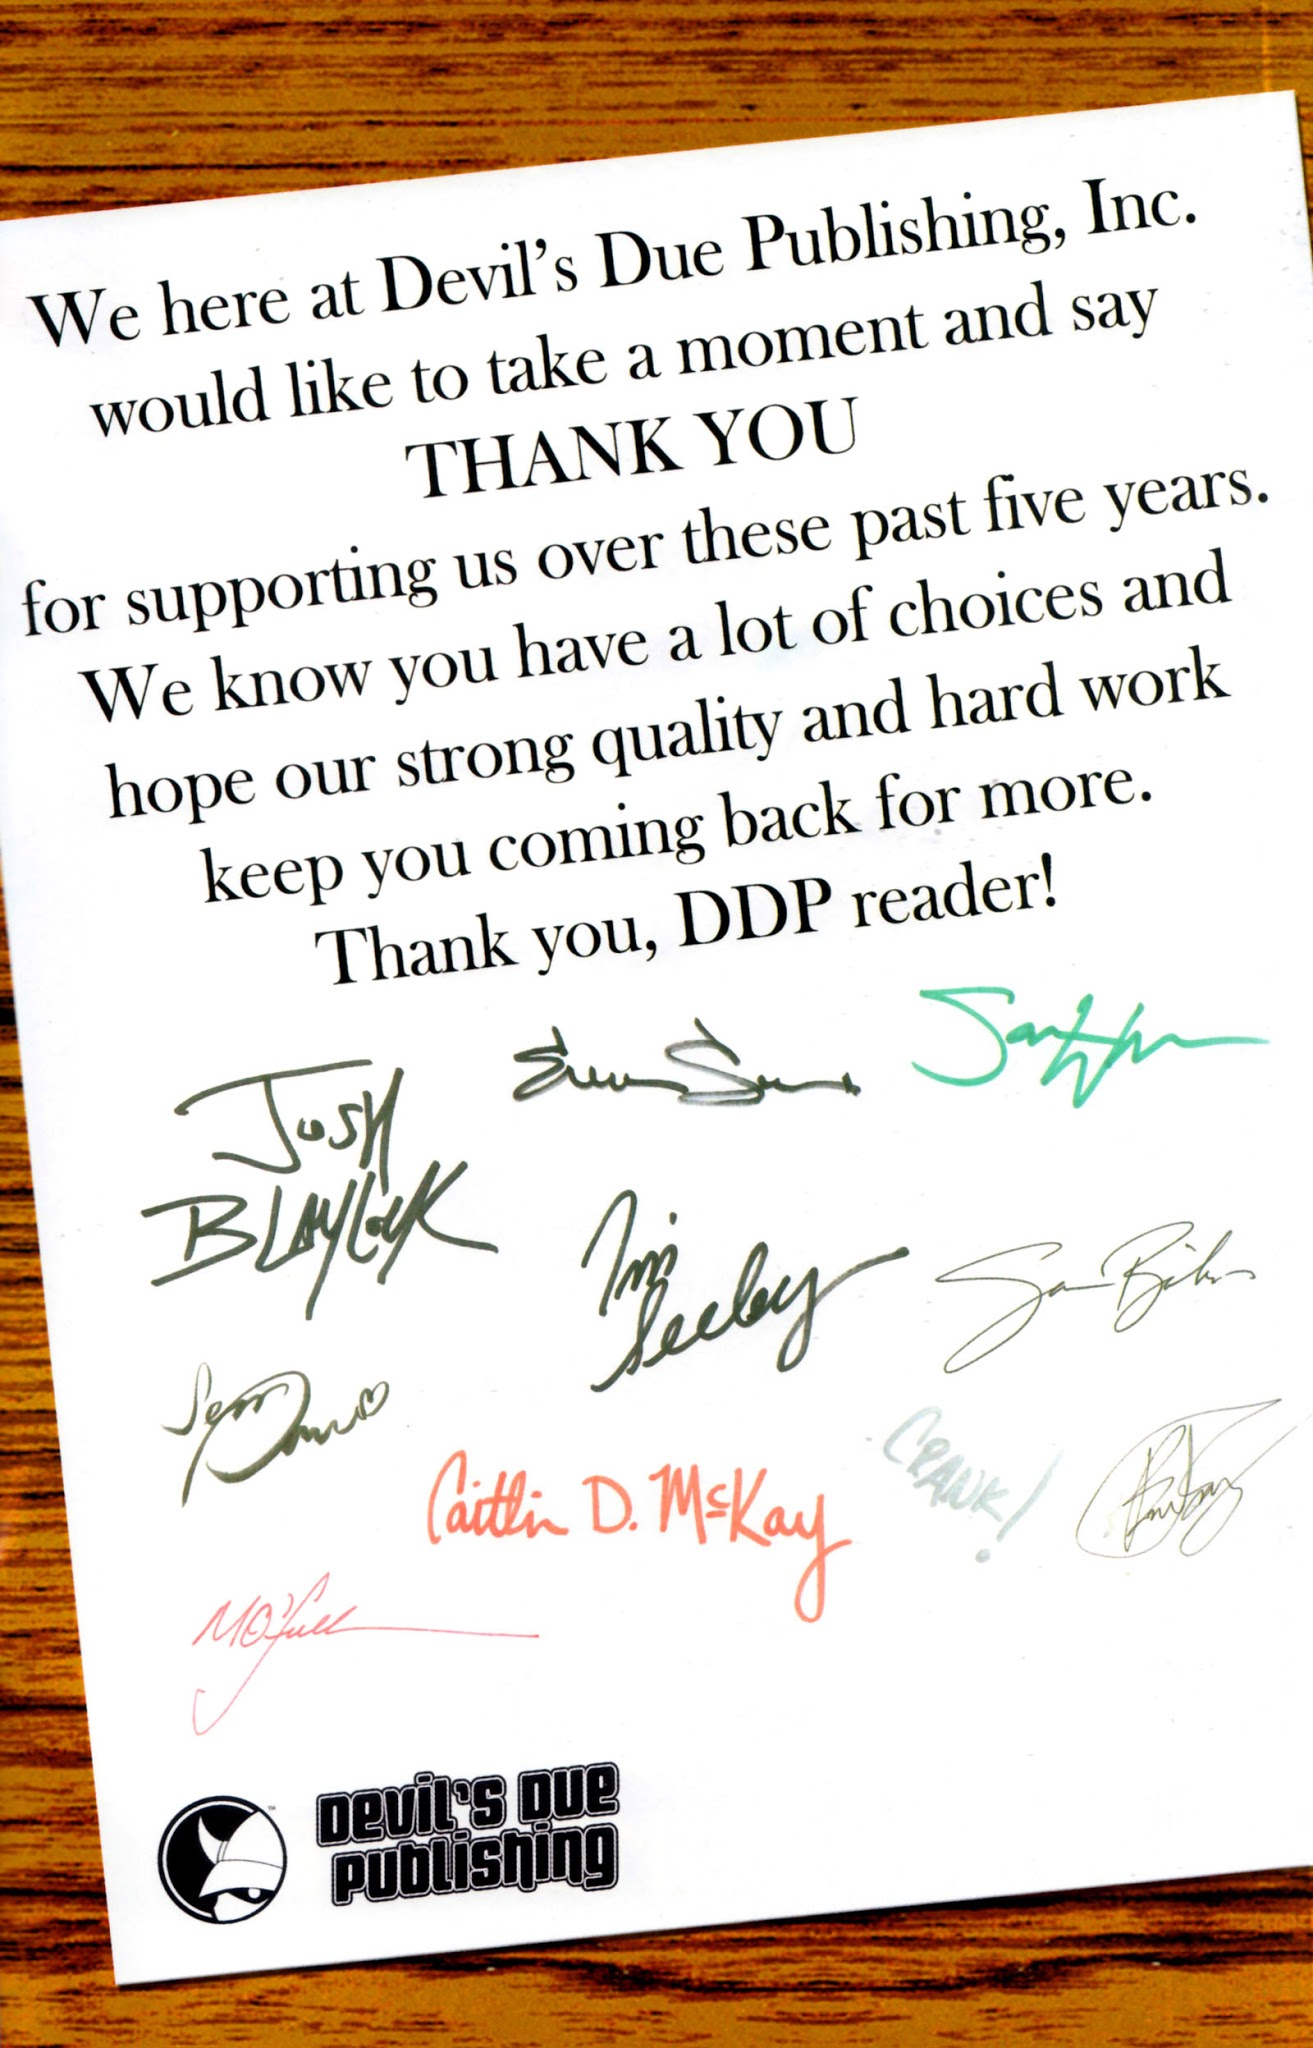 We here at Devil's Due Publishing, Inc.
would like to take a moment and say
THANK YOU
for supporting us over these past five years.
We know you have a lot of choices and
hope our strong quality and hard work
keep you coming back for more.
Thank you, DDP reader!
JOSH
BLAYLOCK
Tim
Seeley
Caitlin D. McKay
CRANK!
DEVIL'S DUE
PUBLISHING
TM